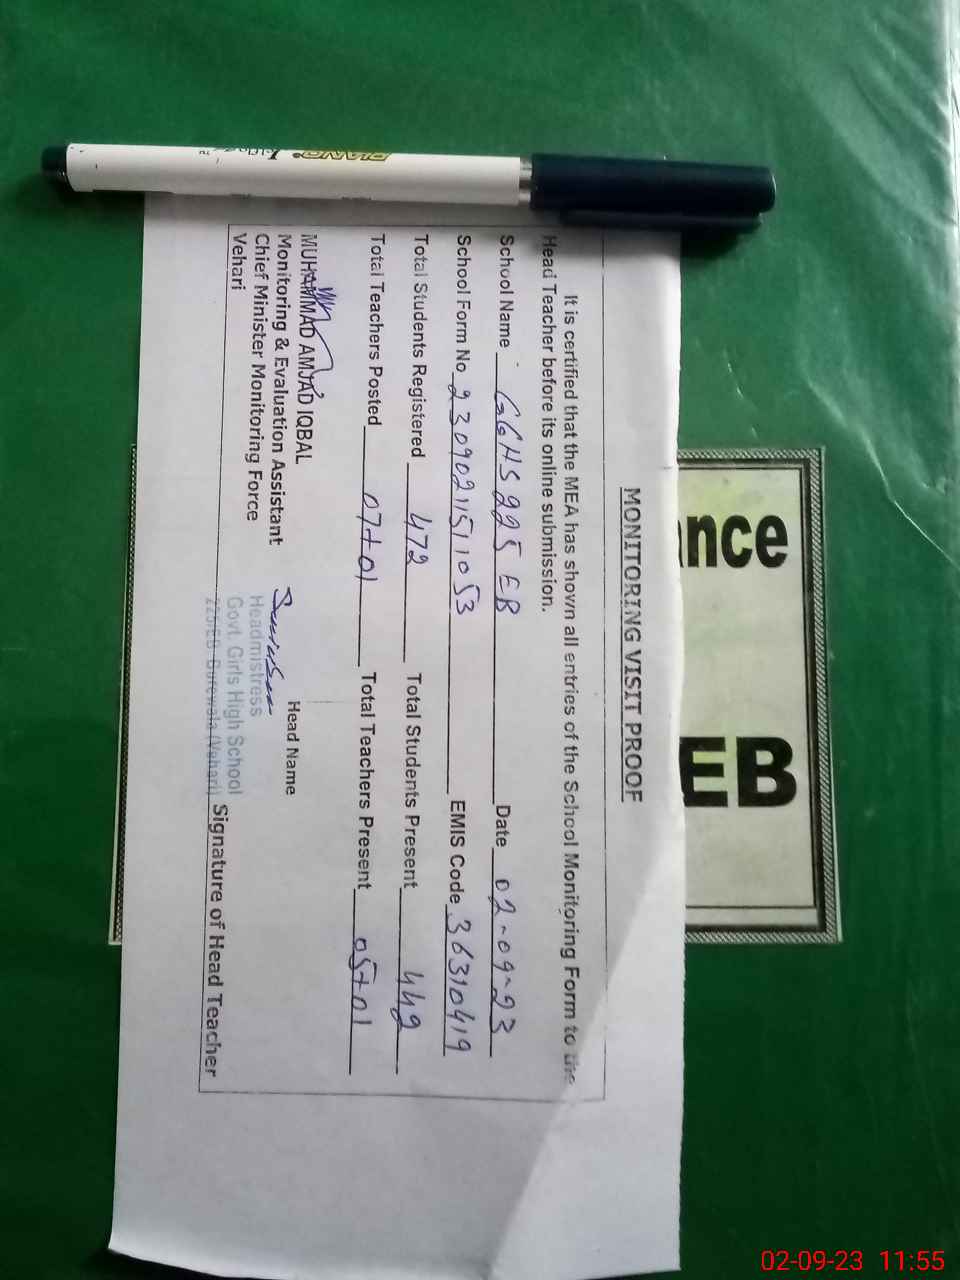 MONITORING VISIT PROOF
It is certified that the MEA has shown all entries of the School Monitoring Form to the
Head Teacher before its online submission.
School Name GGHS 225 EB Date 02-09-23
School Form No 23090211511053 EMIS Code 36310419
Total Students Registered 472 Total Students Present 442
Total Teachers Posted 07+01 Total Teachers Present 05+01
MUHAMMAD AMJAD IQBAL
Monitoring & Evaluation Assistant
Chief Minister Monitoring Force
Vehari
Head Name
Headmistress
Govt. Girls High School
225/EB Burewala (Vehari)
Signature of Head Teacher
nce
EB
PIANO
02-09-23 11:55